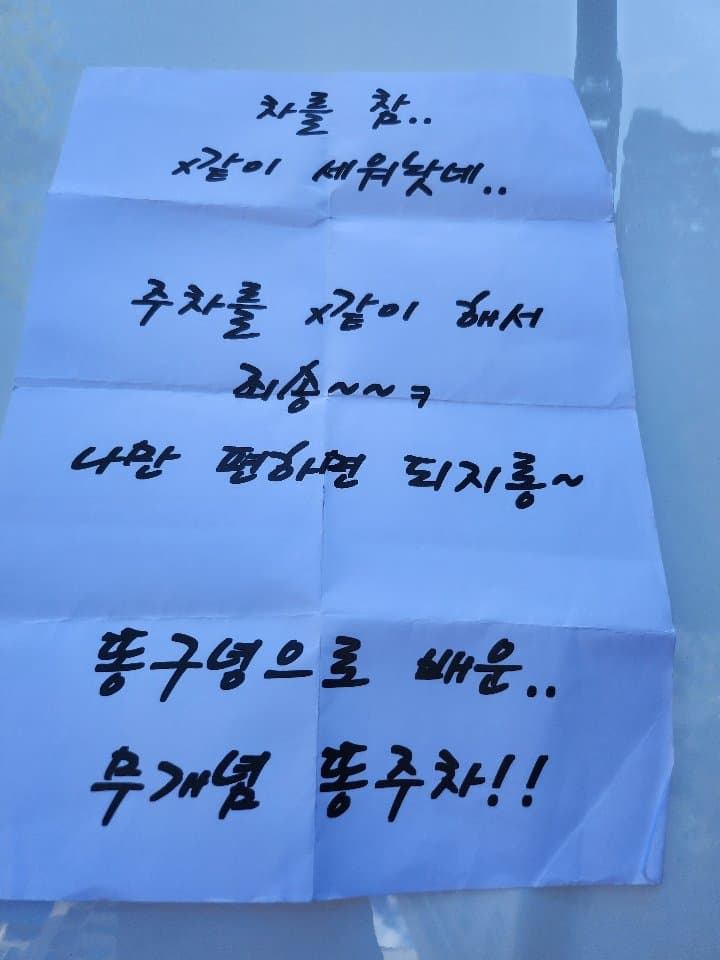 차를 참..
x같이 세워놧네..
주차를 x같이 해서
죄송~~ㅋ
나만 편하면 되지롱~
똥구녕으로 배운..
무개념 똥주차!!